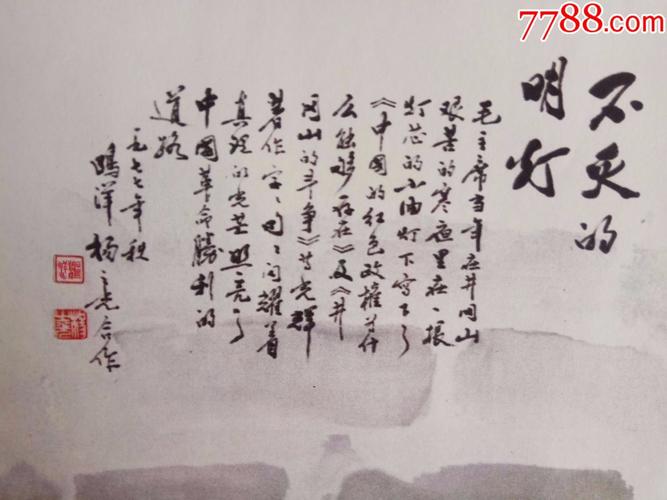 7788.com
不灭的
明灯
毛主席当年在井冈山
艰苦的寒夜里在一根
灯芯的小油灯下写下了
《中国的红色政权为什
么能够存在》及《井
冈山的斗争》等光辉
著作字字句句闪耀着
真理的光芒照亮了
中国革命胜利的
道路
一九七七年秋
鸥洋 杨之光合作